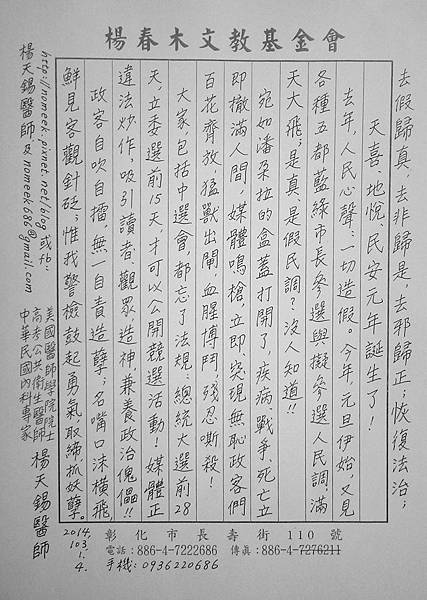 楊春木文教基金會
去假歸真,去非歸正,去邪歸正;恢復法治;
天喜、地悅、民安元年誕生了!
去年,人民心聲:一切造假。今年,元旦伊始,又見
各種五都藍綠市長參選與擬參選人民調,滿
天大飛;是真是假民調?沒人知道!!
宛如潘朵拉的盒蓋打開了,疾病、戰爭、死亡立
即撒滿人間,媒體鳴槍,立即,突現無恥政客們
百花齊放,猛獸出閘,血腥博鬥;殘忍嘶殺!
大家,包括中選會,都忘了法規:總統大選前28
天,立委選前15天,才可以公開競選活動!媒體正
違法炒作,吸引讀者、觀眾,造神,兼養政治傀儡!!
政客自吹自擂,無一自責造孽;名嘴口沫橫飛,
鮮見客觀針砭;惟我警檢鼓起勇氣取締,抓妖孽。
2014,
103,
1.
4.
http://nomeek.pixnet.net/blog 或 fb:
楊天錫醫師 及 nomeek686@gmail.com
美國醫師學院院士
高考公共衛生醫師
中華民國內科專家
楊天錫醫師
彰化市長壽街110號
電話:886-4-7222686 傳真:886-4-7276211
手機:0936220686